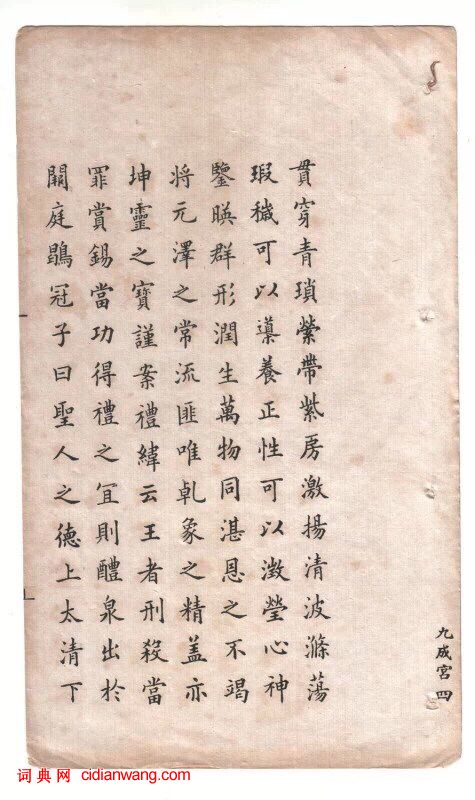 九成宮 四
貫穿青瑣縈帶紫房激揚清波滌蕩
瑕穢可以導養正性可以澂瑩心神
鑒暎群形潤生萬物同湛恩之不竭
將元澤之常流匪唯乹象之精盖亦
坤靈之寶謹案禮緯云王者刑殺當
罪賞錫當功得禮之宜則醴泉出於
闕庭鶡冠子曰聖人之德上太清下
词典网 cidianwang.com